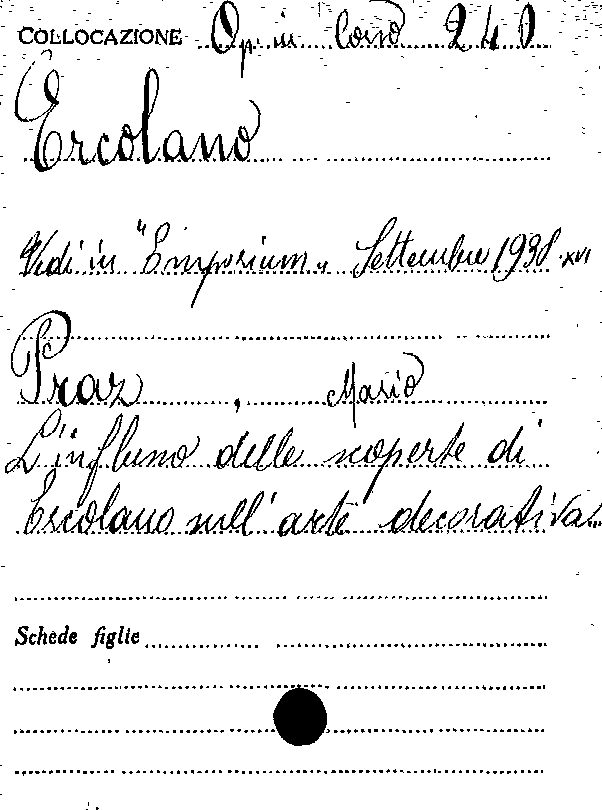 COLLOCAZIONE Op. in Corso 240
Ercolano
Vedi in "Emporium„ Settembre 1938. XVI
Praz, Mario
L'influsso delle scoperte di
Ercolano nell'arte decorativa.
Schede figlie